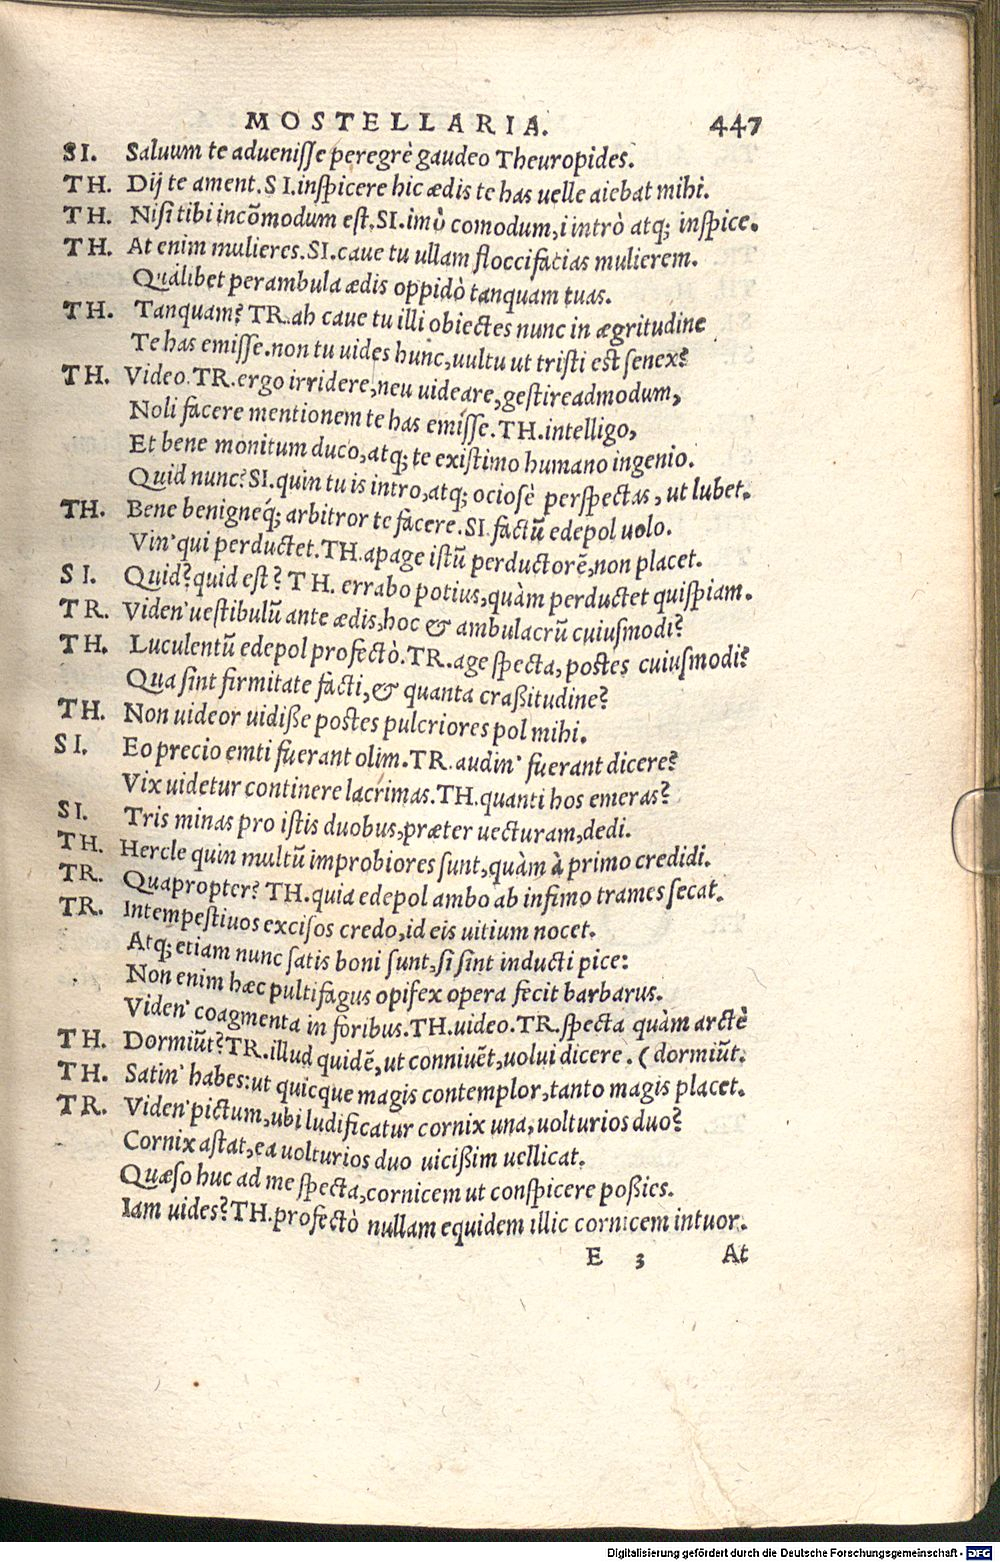 MOSTELLARIA. 447
SI. Saluum te aduenisse peregrè gaudeo Theuropides.
TH. Dij te ament. SI. inspicere hic ædis te has uelle aiebat mihi.
TH. Nisi tibi incõmodum est. SI. imò comodum, i intrò atq; inspice.
TH. At enim mulieres. SI. caue tu ullam floccifacias mulierem.
Quàlibet perambula ædis oppidò tanquam tuas.
TH. Tanquam? TR. ah caue tu illi obiectes nunc in ægritudine
Te has emisse. non tu uides hunc, uultu ut tristi est senex?
TH. Video. TR. ergo irridere, neu uideare, gestire admodum,
Noli facere mentionem te has emisse. TH. intelligo,
Et bene monitum duco, atq; te existimo humano ingenio.
Quid nunc? SI. quin tu is intro, atq; ociosè perspectas, ut lubet.
TH. Bene benigneq́; arbitror te facere. SI. factũ edepol uolo.
Vin' qui perductet. TH. apage istũ perductorẽ, non placet.
SI. Quid? quid est? TH. errabo potius, quàm perductet quispiam.
TR. Viden' uestibulũ ante ædis, hoc & ambulacrũ cuiusmodi?
TH. Luculentũ edepol profectò. TR. age specta, postes cuiusmodi?
Qua sint firmitate facti, & quanta craßitudine?
TH. Non uideor uidiße postes pulcriores pol mihi.
SI. Eo precio emti fuerant olim. TR. audin' fuerant dicere?
Vix uidetur continere lacrimas. TH. quanti hos emeras?
SI. Tris minas pro istis duobus, præter uecturam, dedi.
TH. Hercle quin multũ improbiores sunt, quàm à primo credidi.
TR. Quapropter? TH. quia edepol ambo ab infimo trames secat.
TR. Intempestiuos excisos credo, id eis uitium nocet.
Atq; etiam nunc satis boni sunt, si sint inducti pice:
Non enim hæc pultifagus opifex opera fecit barbarus.
Viden' coagmenta in foribus. TH. uideo. TR. specta quàm arctè
TH. Dormiũt? TR. illud quidẽ, ut conniuẽt, uolui dicere. (dormiũt.
TH. Satin' habes: ut quicque magis contemplor, tanto magis placet.
TR. Viden' pictum, ubi ludificatur cornix una, uolturios duo?
Cornix astat, ea uolturios duo uicißim uellicat.
Quæso huc ad me specta, cornicem ut conspicere poßies.
Iam uides? TH. profectò nullam equidem illic cornicem intuor.
E 3 At
Digitalisierung gefördert durch die Deutsche Forschungsgemeinschaft - DFG